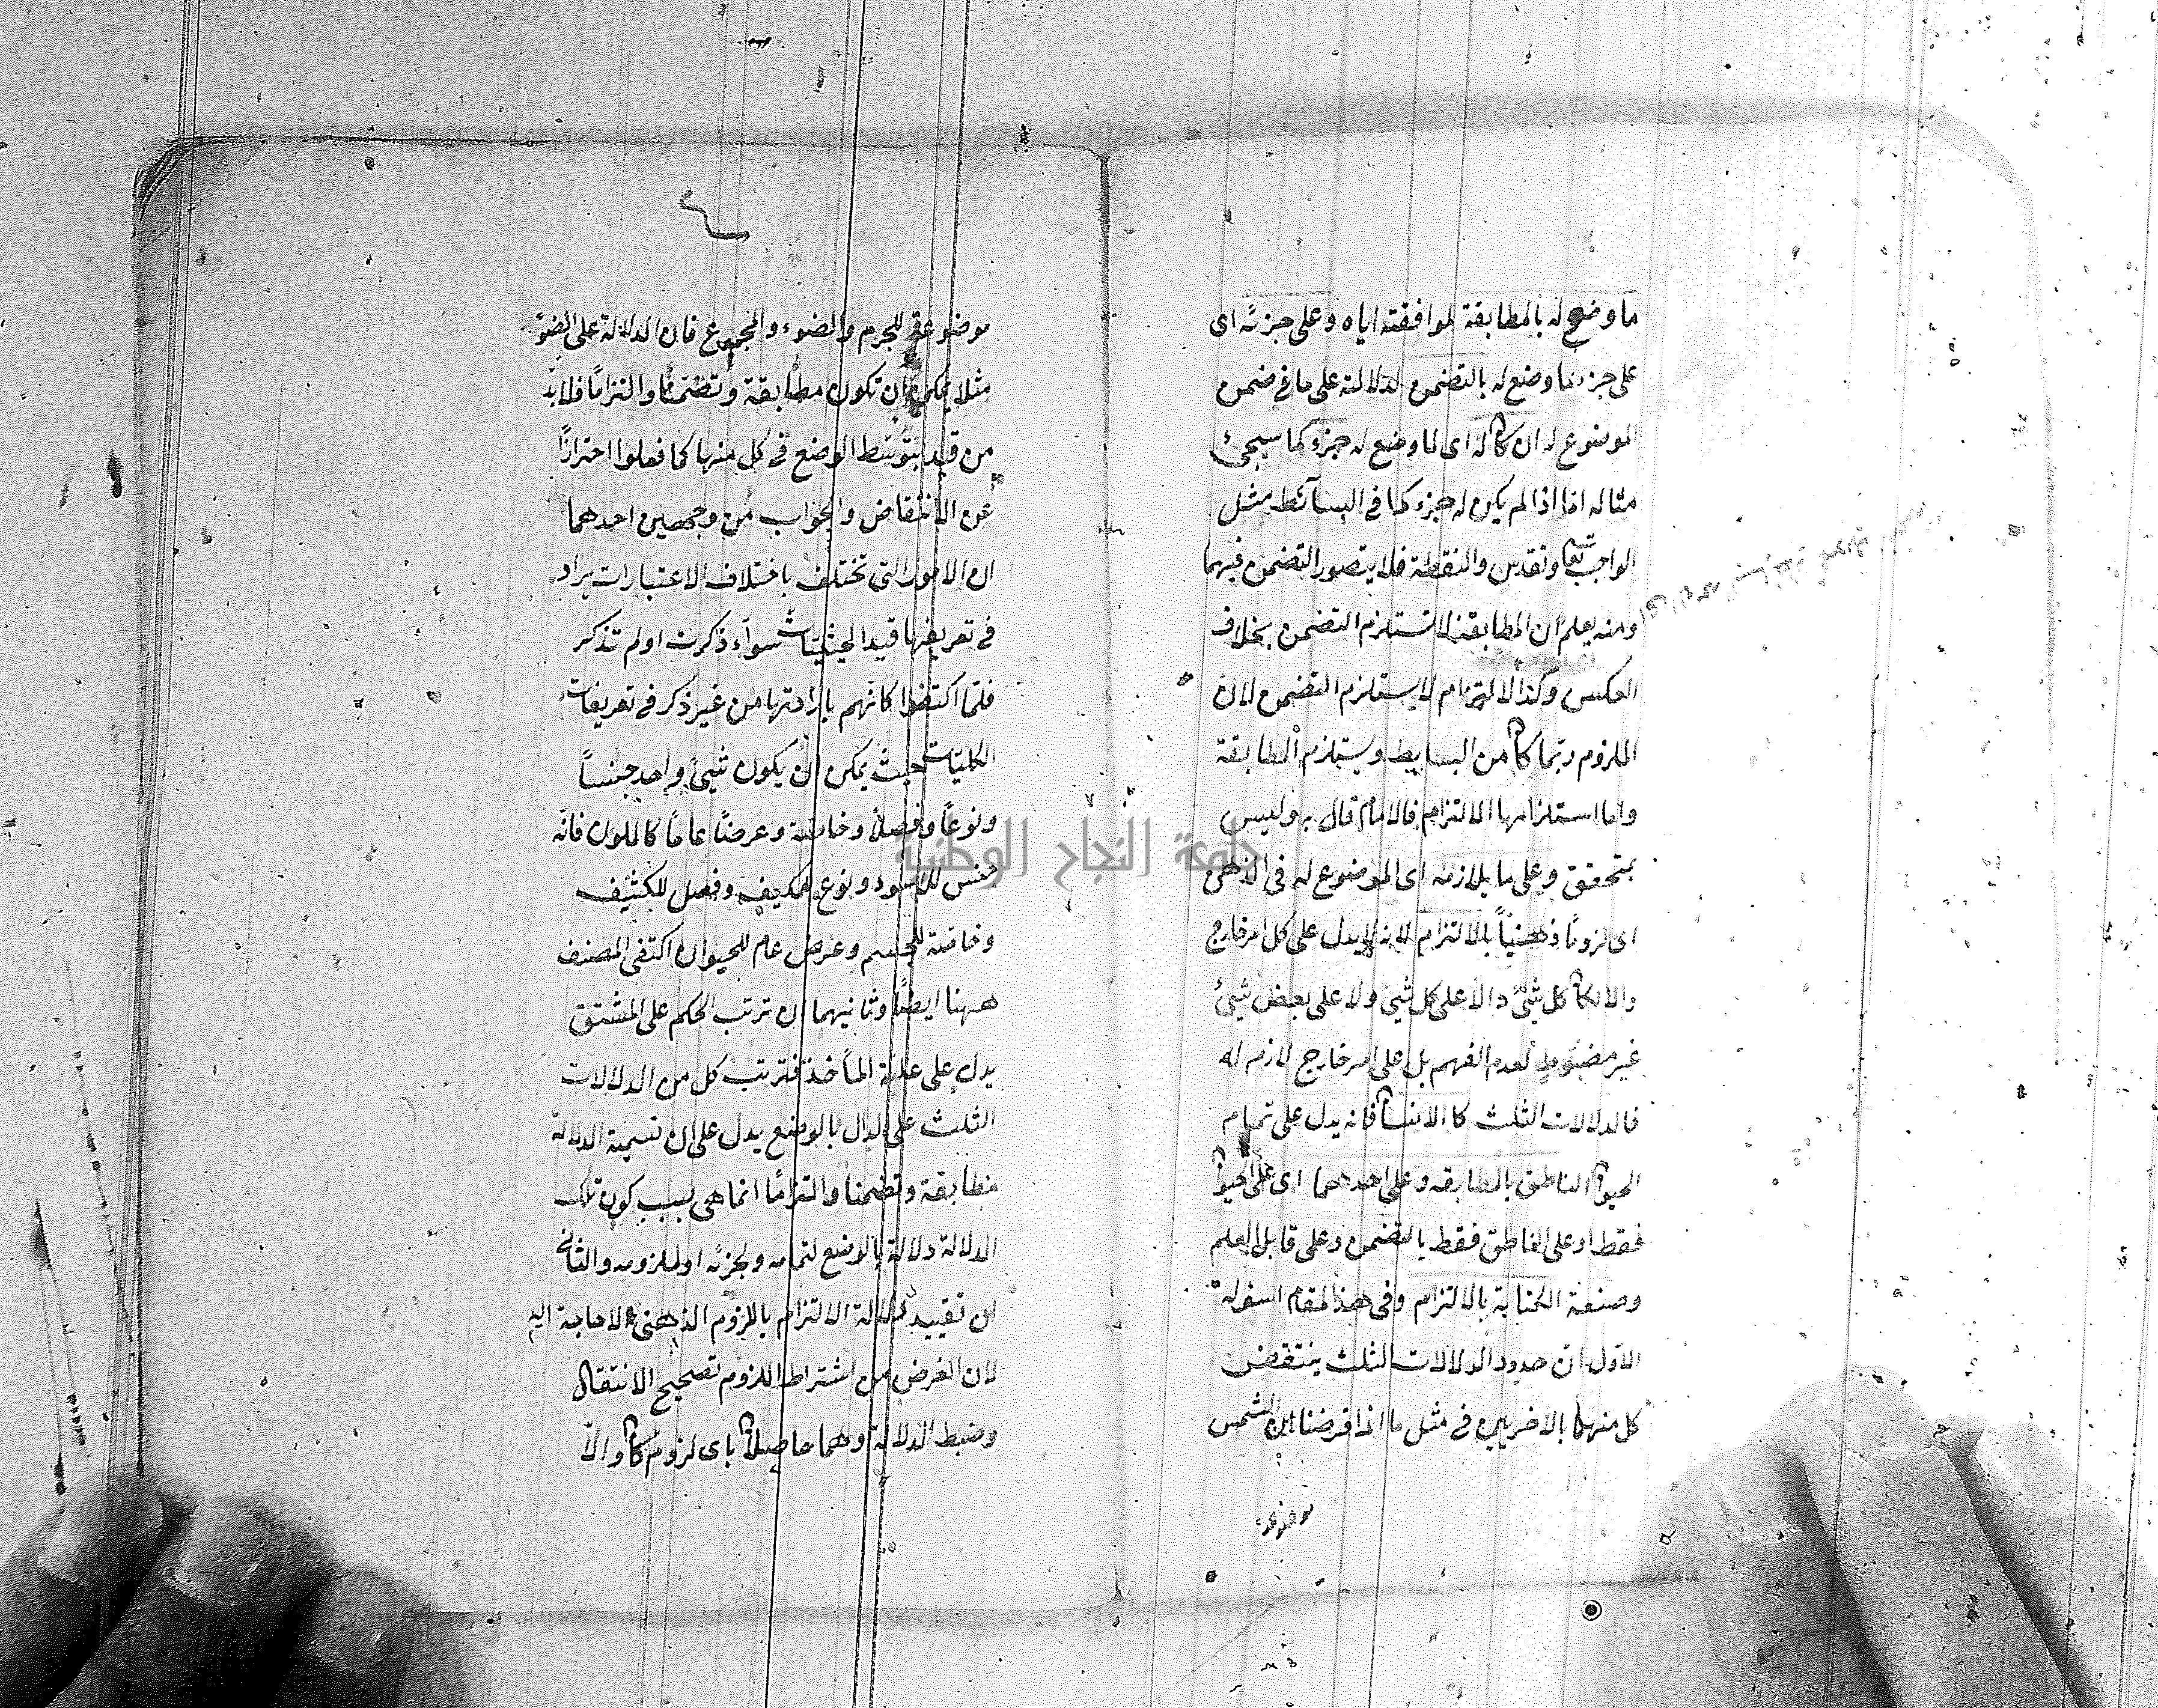 ما وضع له بالمطابقة لموافقته اياه وعلى جزئه اى
على جزء ما وضع له بالتضمن لدلالته على ما فى ضمن
الموضوع له ان كان له اى لما وضع له جزء كما سيجئ
مثاله اما اذا لم يكن له جزء كما فى البسائط مثل
الواجب تعالى وتقدس والنقطة فلا يتصور التضمن فيهما
ومنه يعلم ان المطابقة لا تستلزم التضمن بخلاف
العكس وكذا الالتزام لا يستلزم التضمن لان
الملزوم ربما كان من البسايط ويستلزم المطابقة
واما استلزامها الالتزام فالامام قال به وليس
بمتحقق وعلى ما يلازمه اى الموضوع له فى الذهن
اى لزوما ذهنياً بالالتزام لانه لا يدل على كل امر خارج
والا لكان كل شئ دالا على كل شئ ولا على بعض شئ
غير مضبوط لعدم الفهم بل على امر خارج لازم له
فالدلالات الثلث كالانسان فانه يدل على تمام
الحيوان الناطق بالمطابقه وعلى احدهما اى على الحيوان
فقط او على الناطق فقط بالتضمن وعلى قابل العلم
وصنعة الكتابة بالالتزام وفى هذا المقام اسولة
الاول ان حدود الدلالات الثلث ينتقض
كل منها بالاخريين فى مثل ما اذا فرضنا ان الشمس
موضوعة
موضوعة للجرم والضوء والمجموع فان الدلالة على الضوء
مثلا يمكن ان تكون مطابقة وتضمنًا والتزامًا فلا بدّ
من قيد بتوسّط الوضع فى كل منها كما فعلوا احترازًا
عن الانتقاض والجواب من وجهين احدهما
ان الامور التى تختلف باختلاف الاعتبارات يراد
فى تعريفها قيد الحيثيّات سواء ذكرت او لم تذكر
فلمّا اكتفوا كانهم بارادتها من غير ذكر فى تعريفات
الكليّات حيث يمكن ان يكون شئ واحد جنساً
ونوعاً وفصلاً وخاصة وعرضًا عامًا كالملون فانّه
جنس للاسود ونوع للمكيف وفصل للكثيف
وخاصة للجسم وعرض عام للحيوان اكتفى المصنف
ههنا ايضًا وثانيهما ان ترتب الحكم على المشتق
يدل على علية المأخذ فترتب كل من الدلالات
الثلث على الدال بالوضع يدل على ان تسمية الدلالة
مطابقة وتضمنا والتزامًا انما هى بسبب كون تلك
الدلالة دلالة بالوضع لتمامه ولجزئه او لملزومه والثانى
ان تقييد دلالة الالتزام باللزوم الذهنى لا حاجة اليه
لان الغرض من اشتراط اللزوم تصحيح الانتقال
وضبط الدلالة وهما حاصلان باى لزوم كان والاّ
جامعة النجاح الوطنية